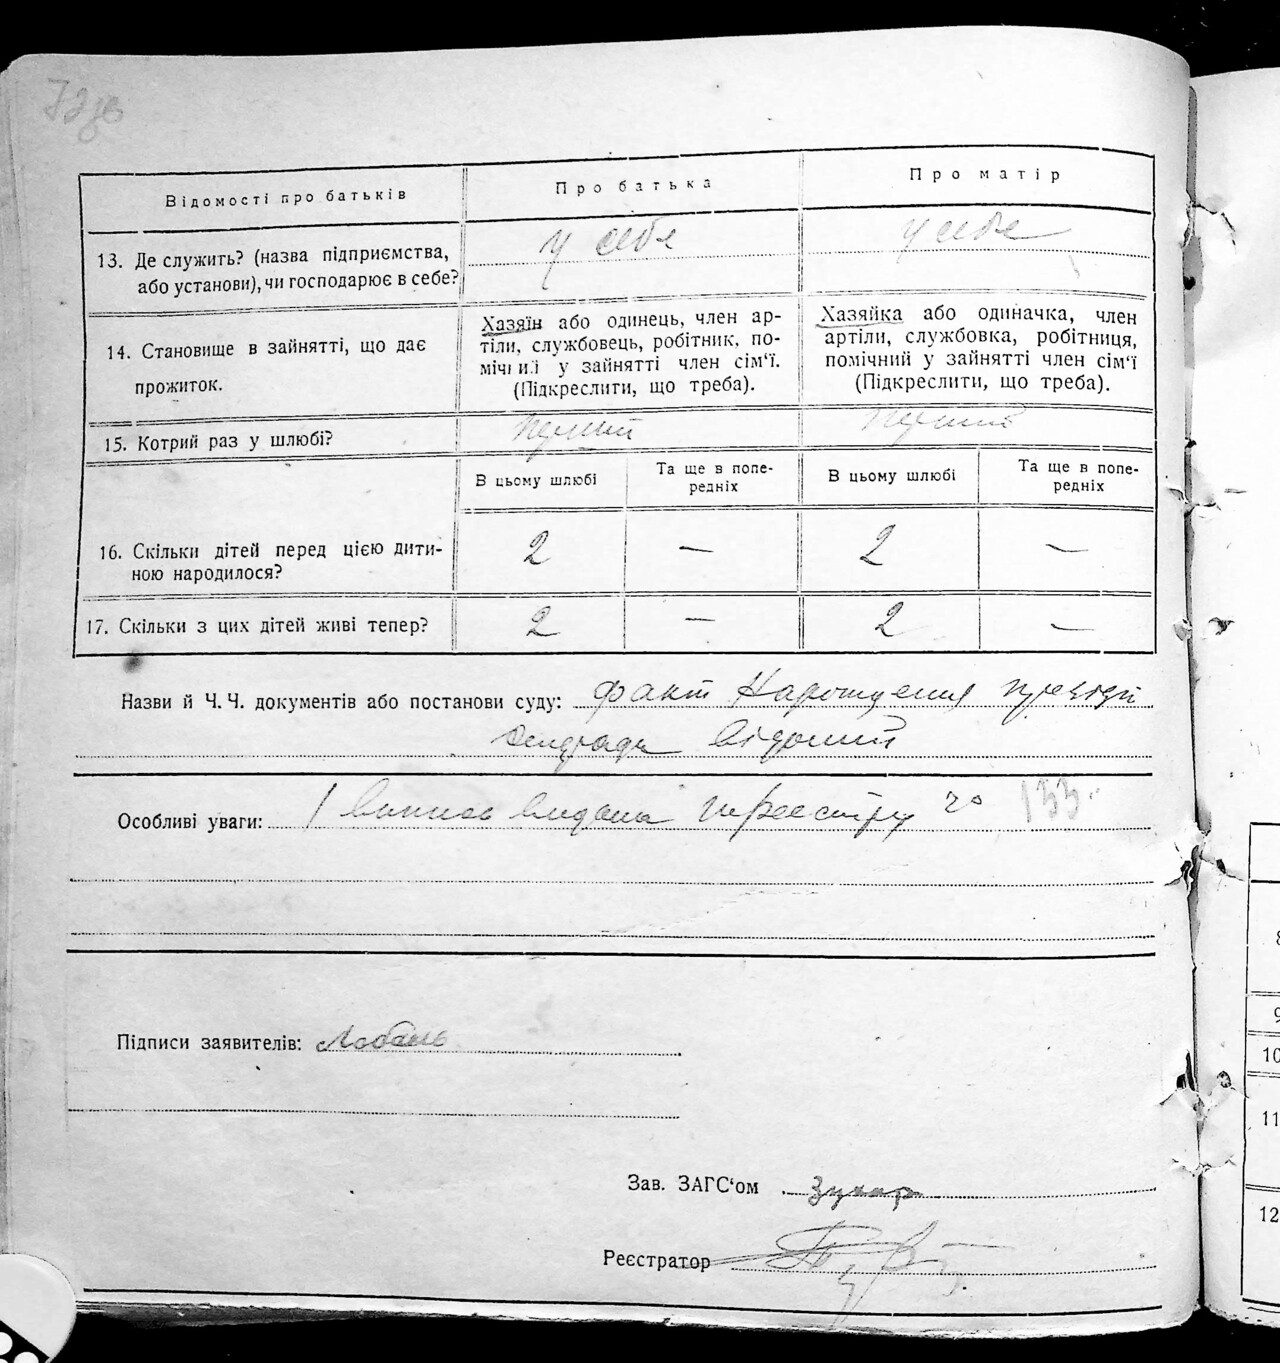 72зв
Відомості про батьків
Про батька
Про матір
13. Де служить? (назва підприємства, або установи), чи господарює в себе?
у себе
у себе
14. Становище в зайнятті, що дає прожиток.
Хазяїн або одинець, член ар-
тіли, службовець, робітник, по-
мічний у зайнятті член сім‘ї.
(Підкреслити, що треба).
Хазяйка або одиначка, член
артіли, службовка, робітниця,
помічний у зайнятті член сім‘ї
(Підкреслити, що треба).
15. Котрий раз у шлюбі?
перший
перший
В цьому шлюбі
Та ще в попе-
редніх
В цьому шлюбі
Та ще в попе-
редніх
16. Скільки дітей перед цією дити-
ною народилося?
2 — 2 —
17. Скільки з цих дітей живі тепер?
2 — 2 —
Назви й Ч. Ч. документів або постанови суду: факт Народження
відомий
Особливі уваги: Випись видана по реестру № 133.
Підписи заявителів: Лобань
Зав. ЗАГС‘ом
Реєстратор
8
9
10
11
12